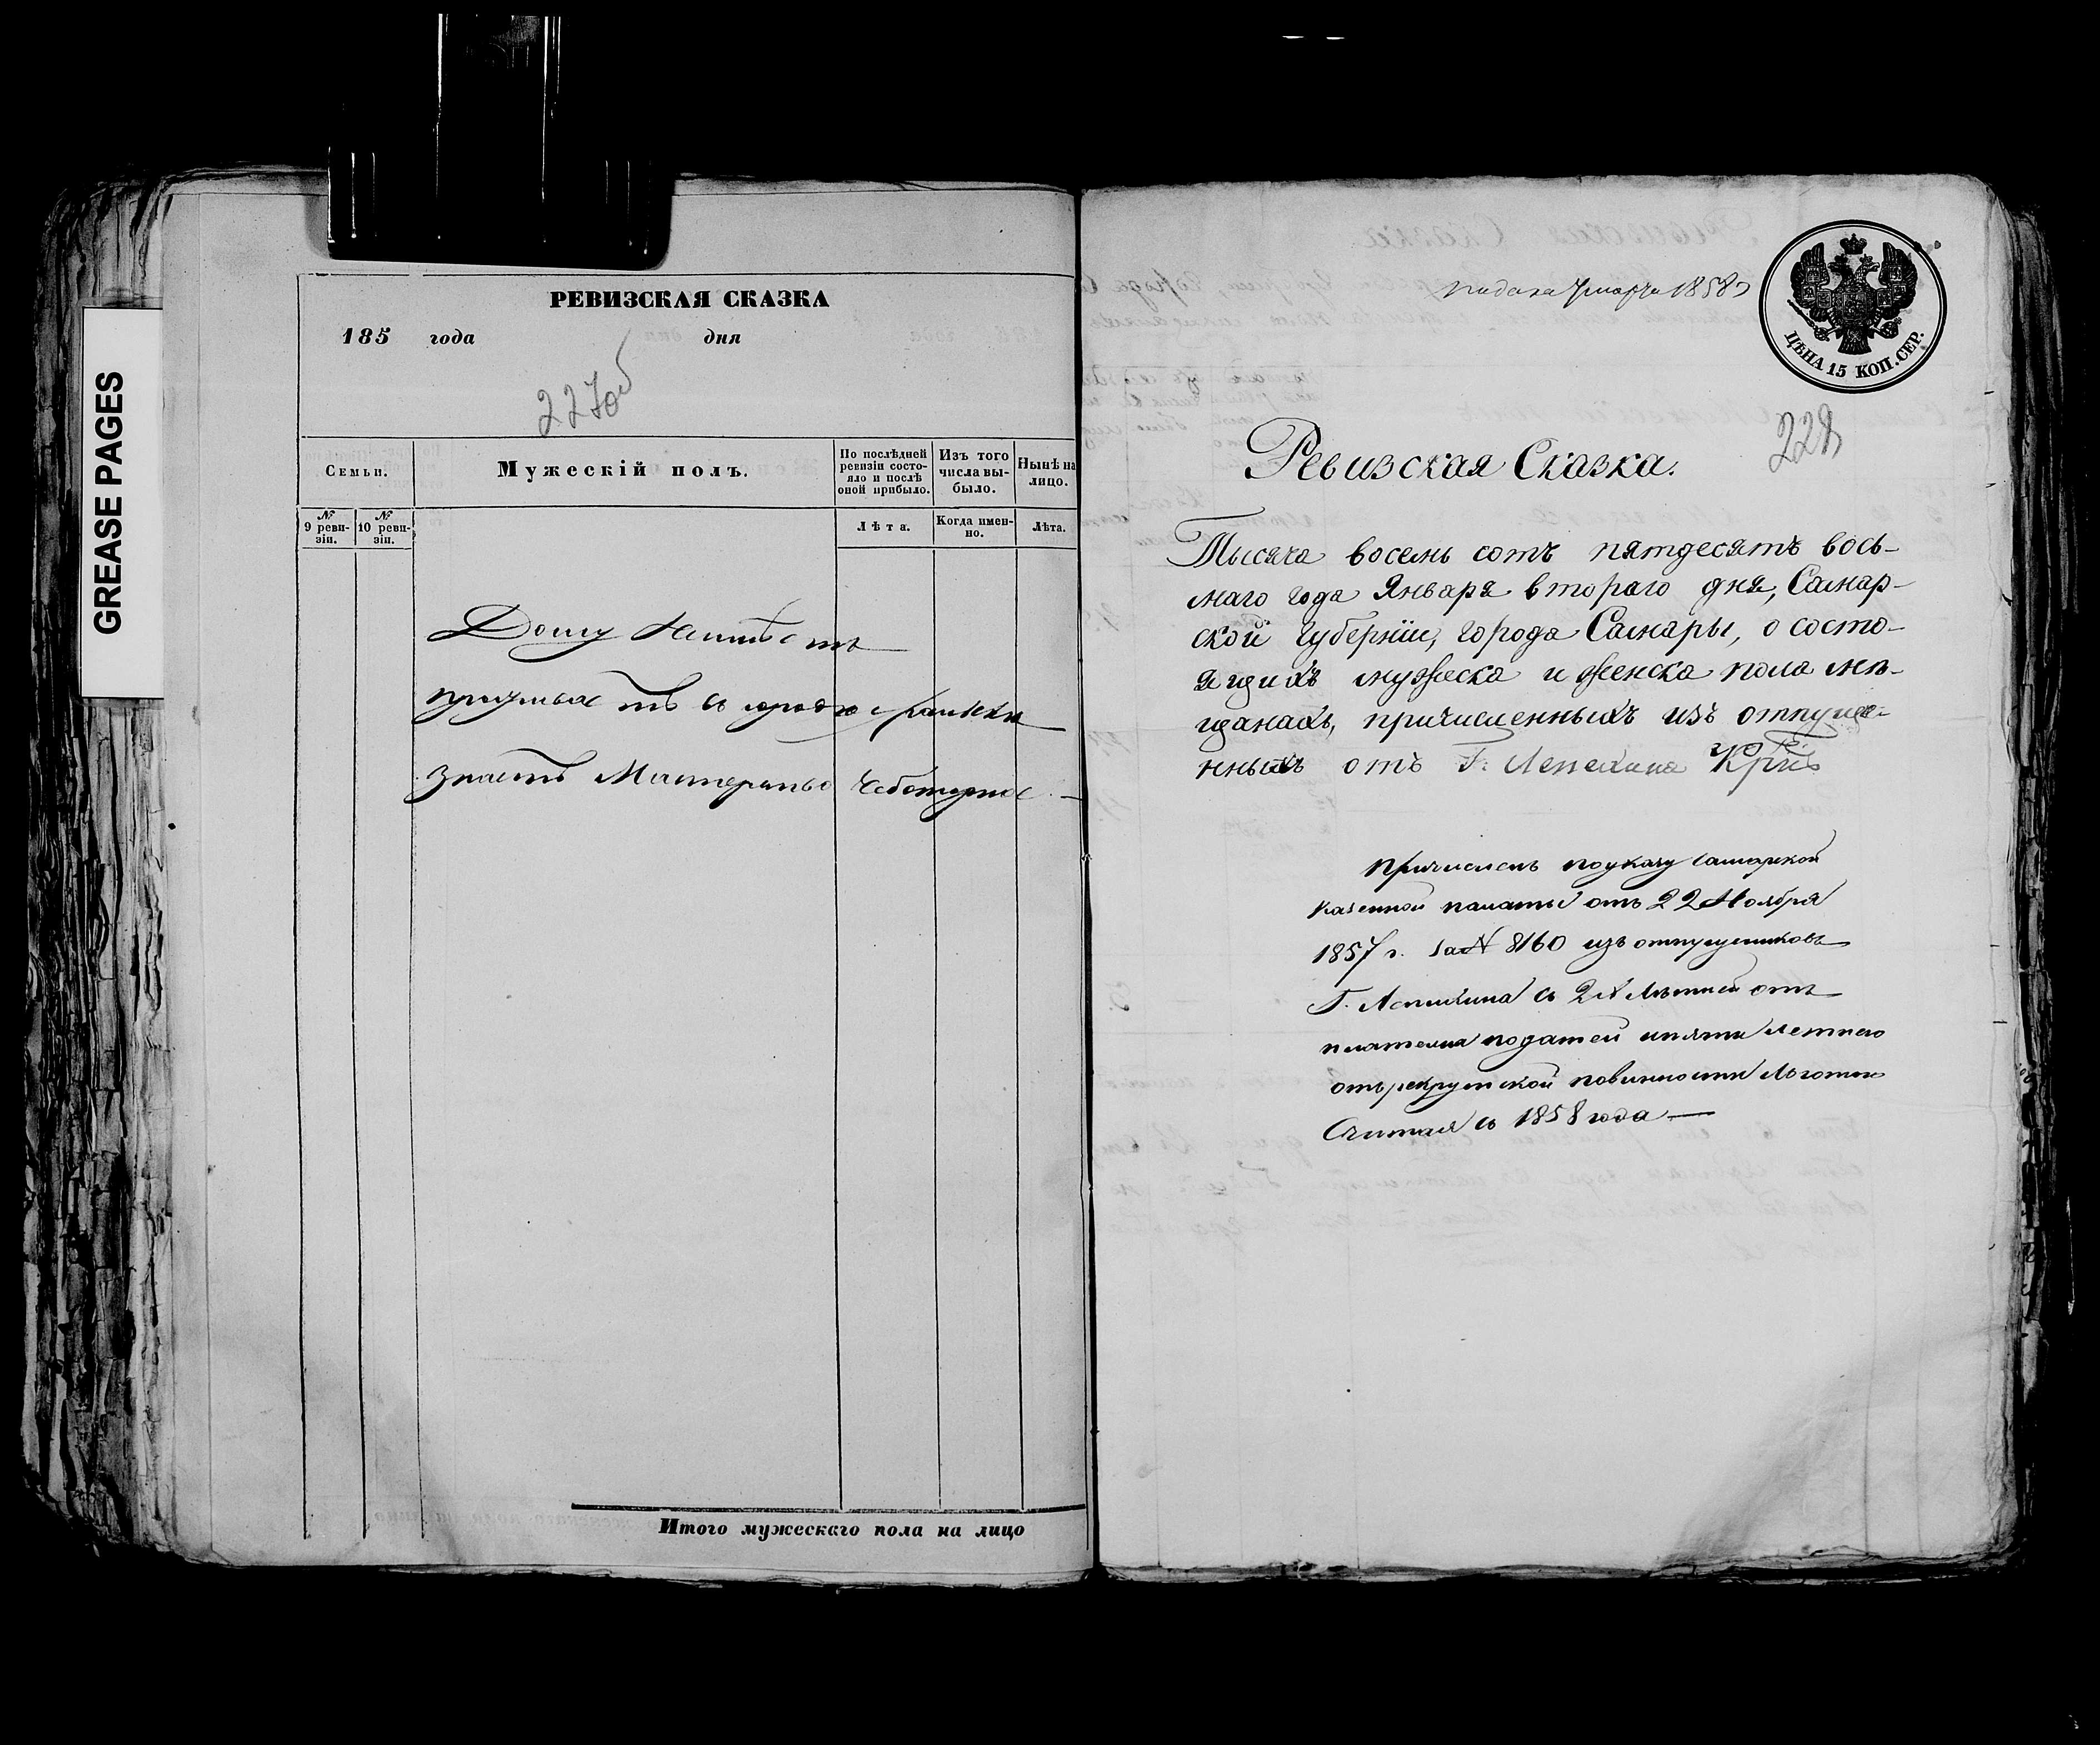 GREASE PAGES
РЕВИЗСКАЯ СКАЗКА
185 года дня
227об
Семьи.
Мужескій полъ.
По послѣдней ревизіи состояло и послѣ оной прибыло.
Изъ того числа выбыло.
Нынѣ на лицо.
№ 9 ревизіи.
№ 10 ревизіи.
Лѣта.
Когда именно.
Лѣта.
Дому неимѣетъ
въ городѣ Самаре
знаетъ Мастерство Чеботарное.
Итого мужескаго пола на лицо
подана 7 марта 1858
ЦѢНА 15 КОП. СЕР.
228
Ревизская Сказка.
Тысяча восемь сотъ пятдесятъ вось-
маго года Января втораго дня, Самар-
ской Губерніи, города Самары, о состо-
ящихъ мужеска и женска пола мѣ-
щанахъ, причисленныхъ изъ отпуще-
нныхъ отъ Г. Лепехина
Причисленъ по указу Самарской
Казенной палаты отъ 22 Ноября
1857 г. за № 8160 изъ отпущениковъ
Г. Лепехина съ 2х Лѣтней отъ
платежа податей и пяти летнею
отъ рекрутской повинности льготою
Считая съ 1858 года —